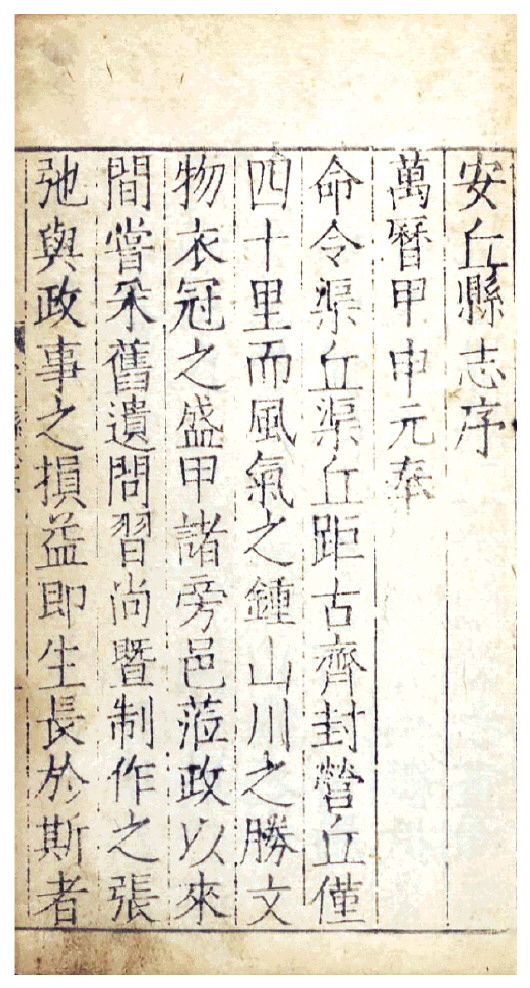 安丘縣志序
萬曆甲申元奉
命令渠丘渠丘距古齊封營丘僅
四十里而風氣之鍾山川之勝文
物衣冠之盛甲諸旁邑蒞政以來
間嘗采舊遺問習尚暨制作之張
弛與政事之損益即生長於斯者